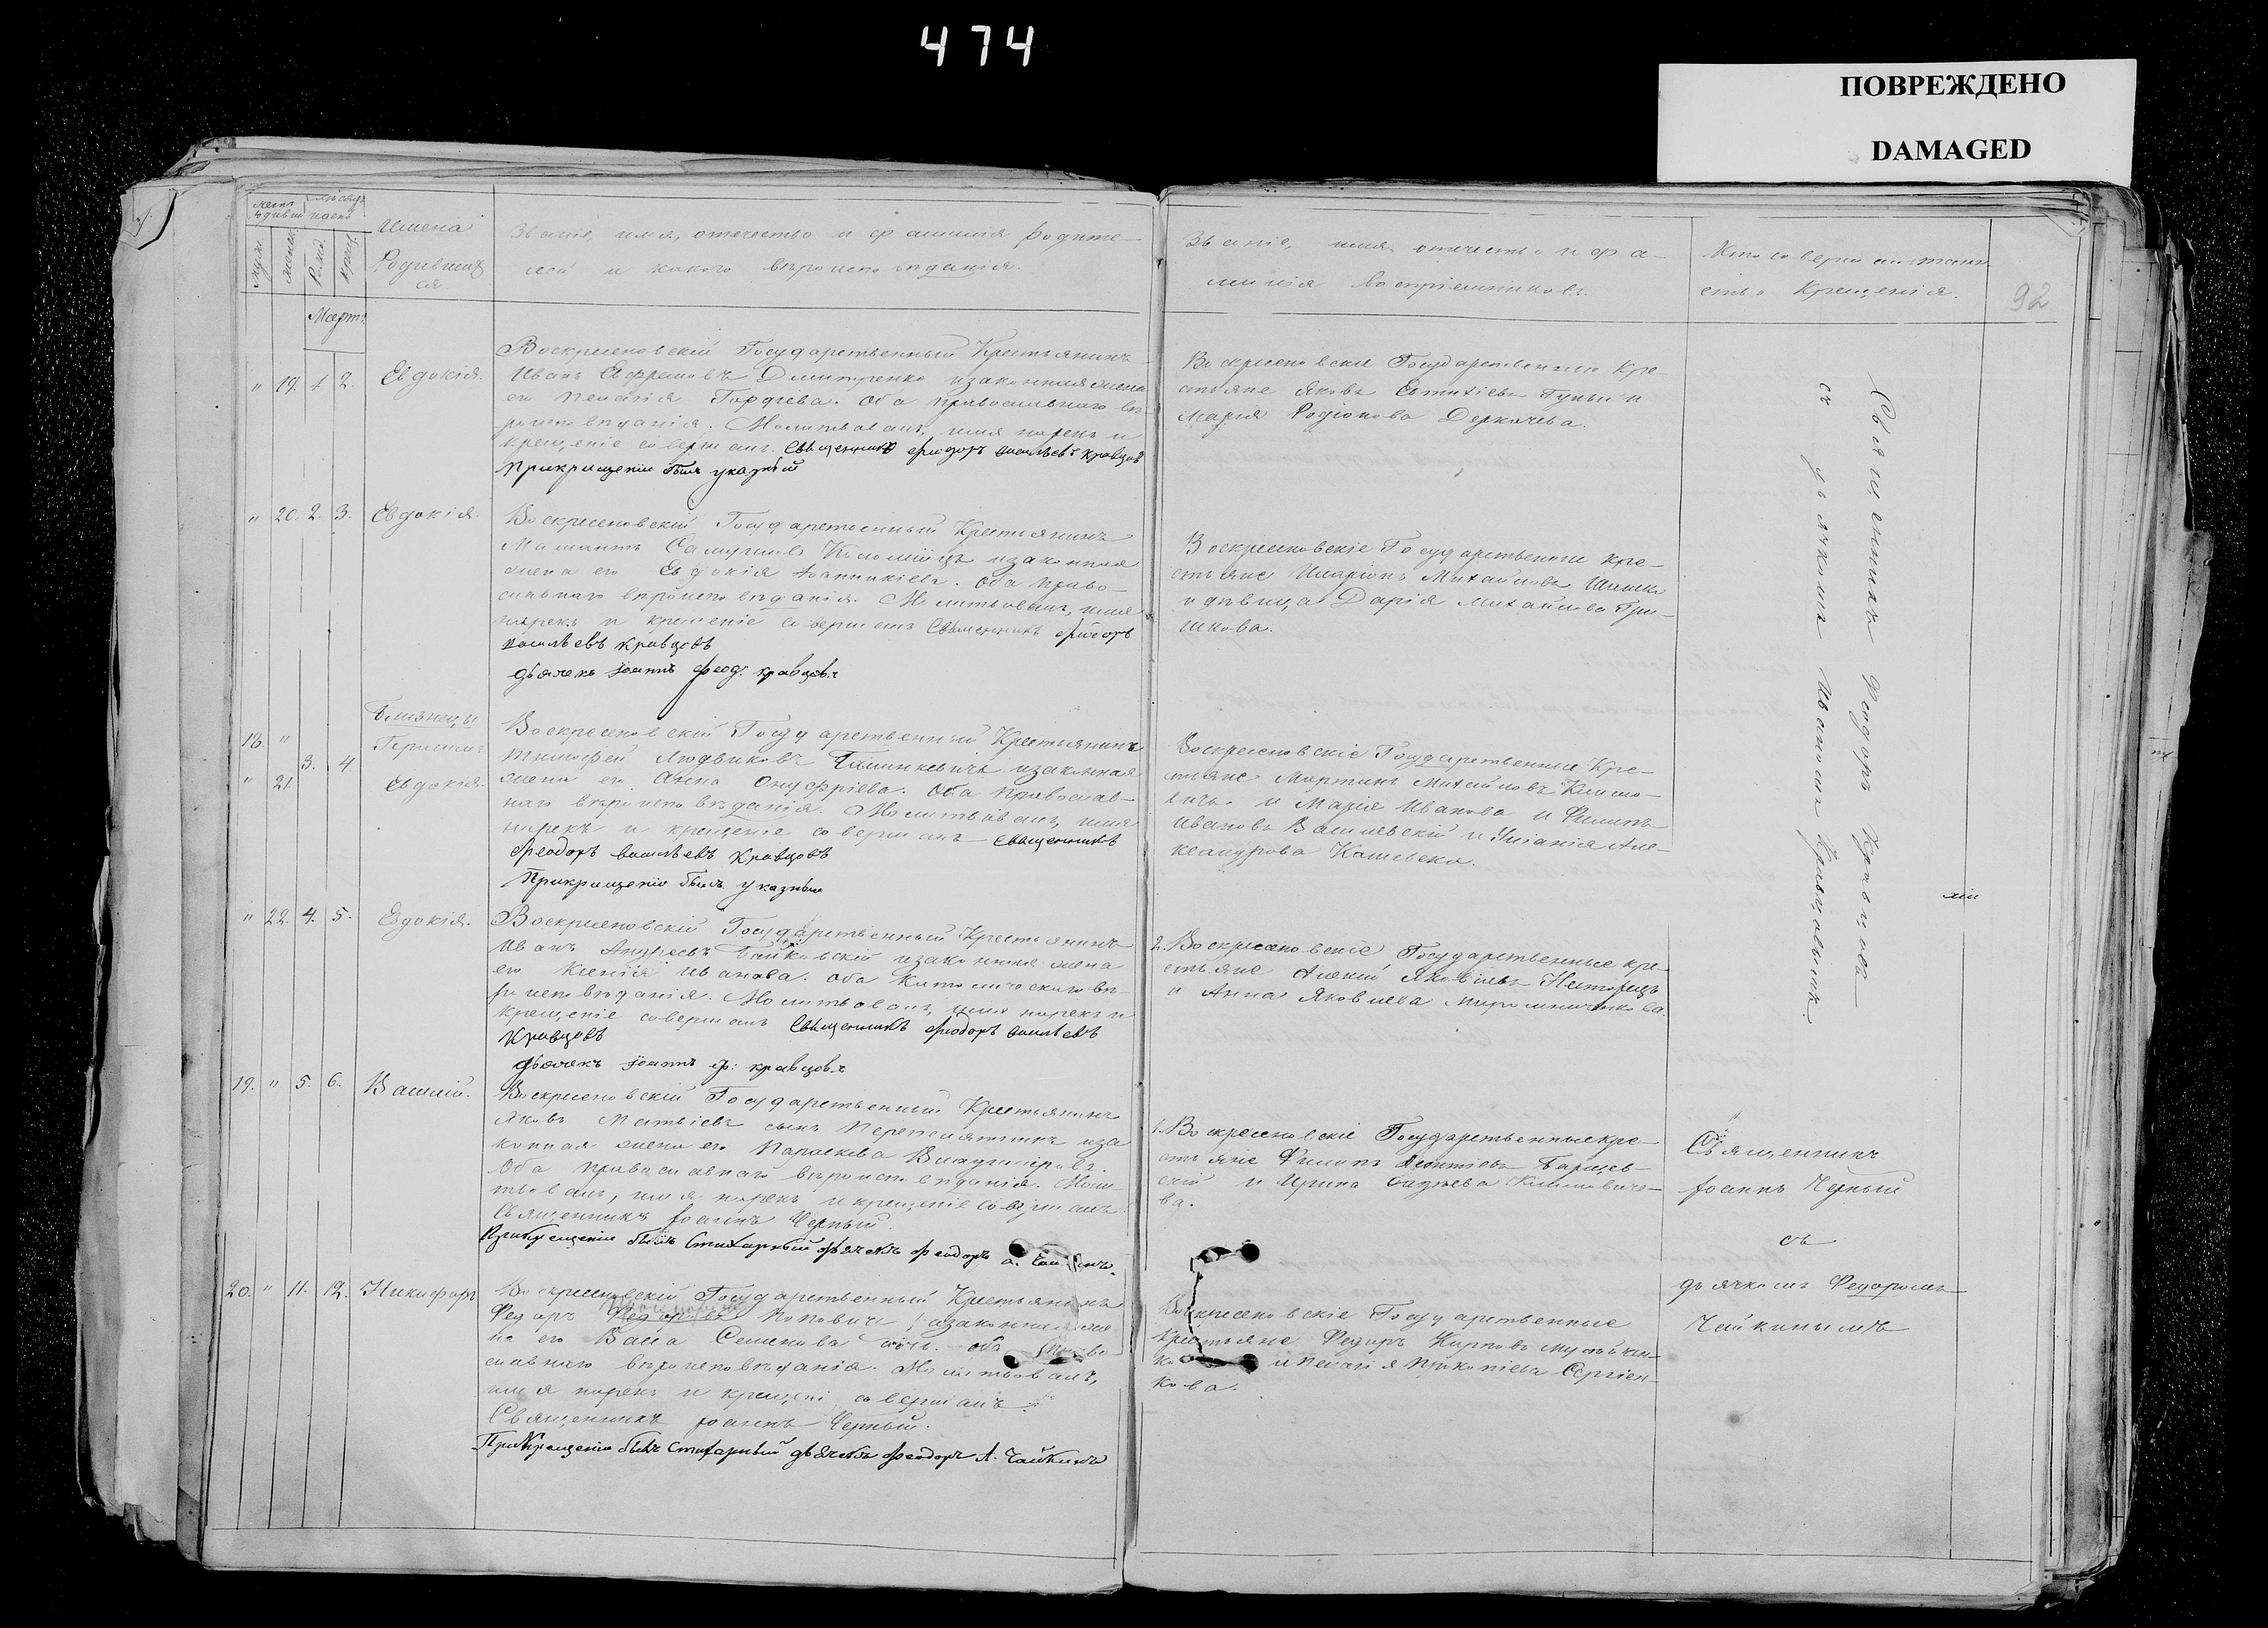 474
ПОВРЕЖДЕНО
DAMAGED
92
Имена
Родивших
ся
Званіе, имя, отечество и фамилія родите-
лей и какого вѣроисповѣданія.
Званіе, имя отечество и фа-
милія воспріемниковъ.
Кто совершалъ таин
ство Крещенія.
Мартъ
" 19. 1 2. Евдокія.
Воскресеновскій Государственный Крестьянинъ
Иванъ Ефремовъ Дмитренко изаконная жена
его Пелагія Гордѣева. Оба православнаго вѣ-
роисповѣданія. Молитвовалъ, имя нарекъ и
крещеніе совершалъ Священникъ Феодоръ Васильевъ Кравцовъ
При крещеніи былъ указный
Воскресеновскіе Государственные Кре-
стьяне Яковъ Евтихіевъ и
Марія Родіонова Деркачева.
" 20. 2. 3. Евдокія.
Воскресеновскій Государственный Крестьянинъ
Коломіицъ изаконная
жена его Евдокія Іоанникіева. Оба право-
славнаго вѣроисповѣданія. Молитвовалъ, имя
нарекъ и крещеніе совершалъ Священникъ Феодоръ
Васильевъ Кравцовъ
Дьячекъ Іоаннъ Феод. Кравцовъ
Воскресеновскіе Государственные Кре-
стьяне Иларіонъ Михайловъ
и дѣвица Дарія Михайлова Гри-
шкова.
Близнецы
18. " 3. 4. Герасимъ
" 21 Евдокія.
Воскресеновскій Государственный Крестьянинъ
Тимофей Людвиковъ изаконная
жена его Анна Онуфріева. Оба Православ-
наго вѣроисповѣданія. Молитвовалъ, имя
нарекъ и крещеніе совершалъ Священникъ
Феодоръ Васильевъ Кравцовъ
При крещеніи былъ указный
Воскресеновскіе Государственные Кре-
стьяне Мартинъ Михайловъ Климо-
вичъ и Марія Иванова и Филипъ
Ивановъ Василевскій и Уліанія Але-
ксандрова
" 22. 4. 5. Евдокія.
Воскресеновскій Государственный Крестьянинъ
Иванъ Андреевъ Байковскій изаконная жена
его Ксенія Иванова. Оба Католическаго вѣ-
роисповѣданія. Молитвовалъ, имя нарекъ и
крещеніе совершалъ Священникъ Феодоръ Васильевъ
Кравцовъ
Дьячекъ Іоаннъ Ф: Кравцовъ
2. Воскресеновскіе Государственные кре-
стьяне Алексій Яковлевъ
и Анна Яковлева Мирошниченкова.
Священникъ Феодоръ Кравцовъ
съ дьячкомъ Иваномъ Кравцовымъ.
19. " 5. 6. Василій.
Воскресеновскій Государственный Крестьянинъ
Яковъ Матвіевъ сынъ Перепелятникъ иза
конная жена его Параскева Владимірова.
Оба Православнаго вѣроисповѣданія. Моли-
твовалъ, имя нарекъ и крещеніе совершалъ
Священникъ Іоаннъ Черный.
При Крещеніи былъ Стихарный дьячекъ Феодоръ А. Чайкинъ.
1. Воскресеновскіе Государственные кре-
стьяне Филипъ Леонтіевъ
скій и Ирина Климовиче-
ва.
Священникъ
Іоаннъ Черный
съ
дьячкомъ Федоромъ
Чайкинымъ
20. " 11. 12. Никифоръ
Воскресеновскій Государственный Крестьянинъ
Федоръ Поповичъ изаконная же
на его Васса Семенова Оба право
славнаго вѣроисповѣданія. Молитвовалъ,
имя нарекъ и крещеніе совершалъ
Священникъ Іоаннъ Черный.
При Крещеніи былъ Стихарный дьячекъ Феодоръ А. Чайкинъ
Воскресеновскіе Государственные
Крестьяне Федоръ Карповъ
и Пелагія Прокопіева Сергіен-
кова.